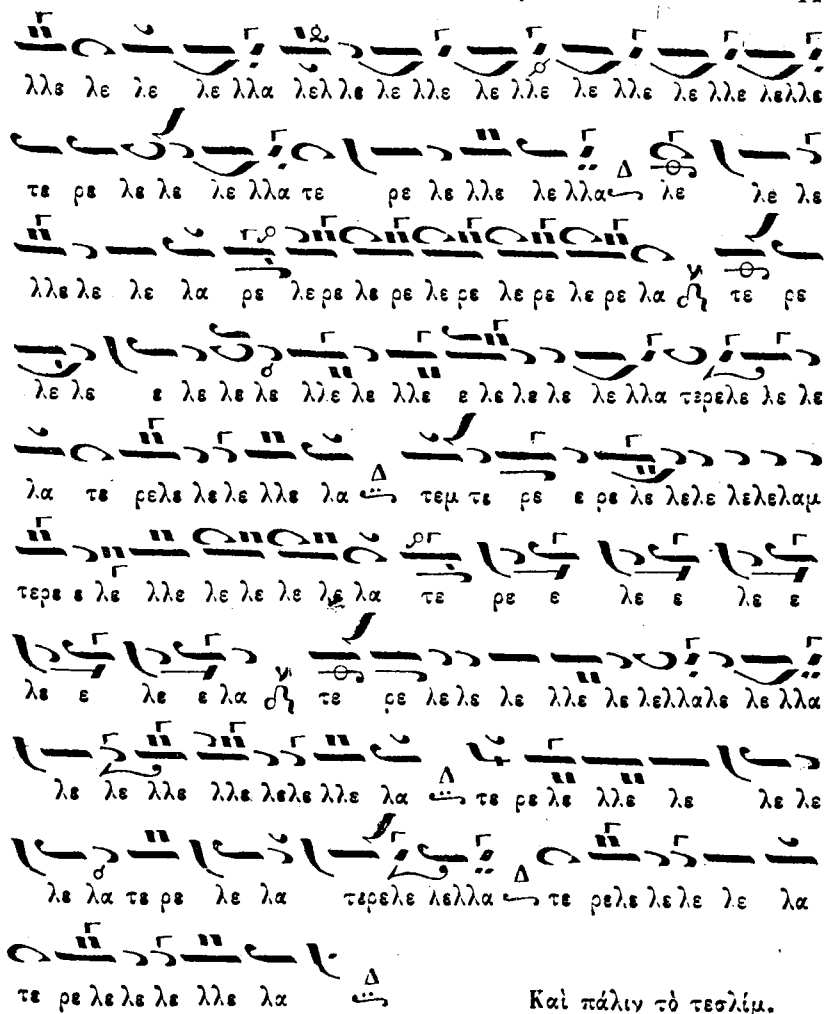 λλε λε λε λε λλα λελ λε λε λλε λε λλε λε λλε λε λλε λελλε
τε ρε λε λε λε λλα τε ρε λε λλε λε λλα Δ λε λε λε
λλε λε λε λα ρε λε ρε λε ρε λε ρε λε ρε λε ρε λα τε ρε
λε λε ε λε λε λε λλε λε λλε ε λε λε λε λε λλα τερελε λε λε
λα τε ρελε λε λε λλε λα Δ τεμ τε ρε ε ρε λε λελε λελελαμ
τερε ε λε λλε λε λε λε λε λα τε ρε ε λε ε λε ε
λε ε λε ε λα τε ρε λε λε λε λλε λε λελλαλε λε λλα
λε λε λλε λλε λελε λλε λα Δ τε ρε λε λλε λε λε λε
λε λα τε ρε λε λα τερελε λελλα Δ τε ρελε λε λε λε λα
τε ρε λε λε λε λλε λα Δ Καὶ πάλιν τὸ τεσλίμ.